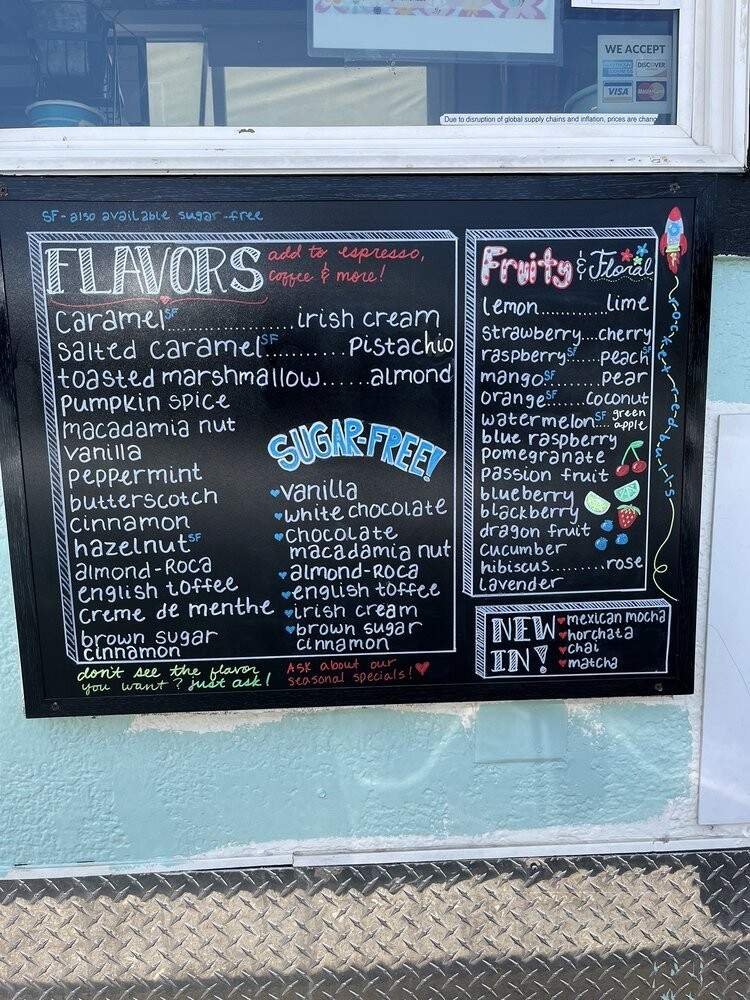 WE ACCEPT
DISCOVER
VISA MasterCard
Due to disruption of global supply chains and inflation, prices are
SF - also available sugar-free
FLAVORS add to espresso, coffee & more!
caramel SF..................irish cream
salted caramel SF.........Pistachio
toasted marshmallow......almond
Pumpkin spice
macadamia nut
vanilla
peppermint
butterscotch
cinnamon
hazelnut SF
almond-Roca
english toffee
creme de menthe
brown sugar
cinnamon
SUGAR-FREE!
vanilla
white chocolate
chocolate
macadamia nut
almond-Roca
english toffee
irish cream
brown sugar
cinnamon
don't see the flavor
you want? just ask!
Ask about our
seasonal specials!
Fruity & Floral
lemon...........lime
strawberry...cherry
raspberry SF....peach SF
mango SF........pear
orange SF.......coconut
watermelon SF.... green apple
blue raspberry
pomegranate
passion fruit
blueberry
blackberry
dragon fruit
cucumber
hibiscus.........rose
lavender
rocket redbulls
NEW IN!
mexican mocha
horchata
chai
matcha